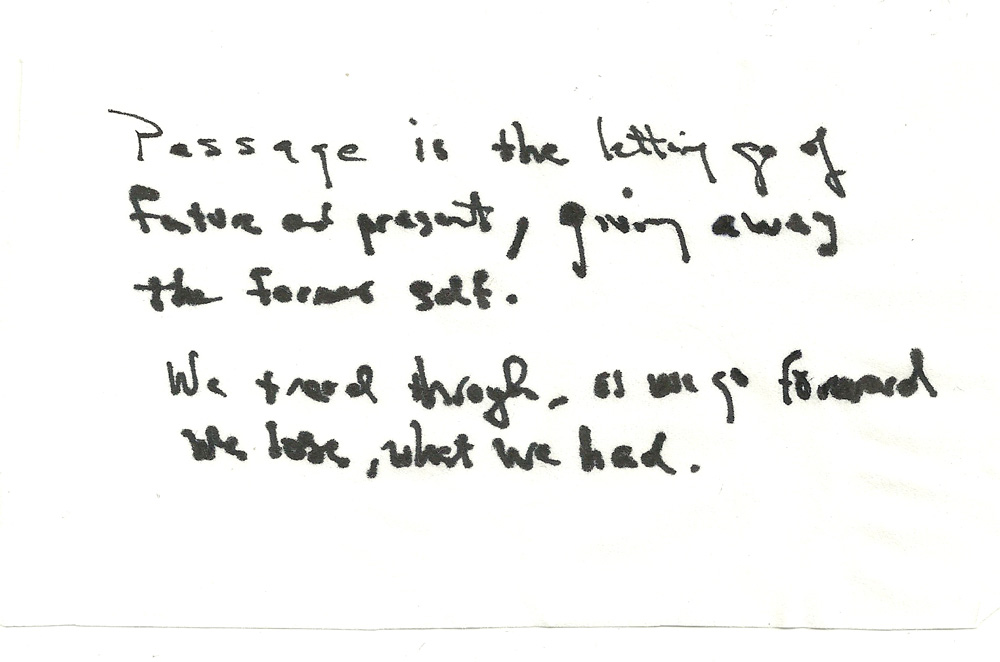 Passage is the letting go of
future as present, giving away
the former self.
We tread through, as we go forward
we lose, what we had.